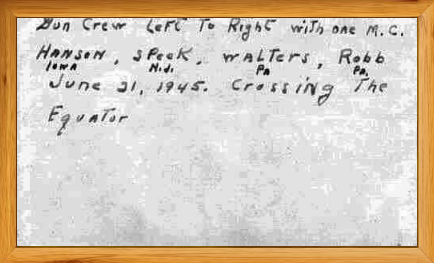 Gun Crew Left To Right with one M.C.
HANSON, SPEEK, WALTERS, Robb
IOWA N.J. PA PA.
June 21, 1945. Crossing The
Equator